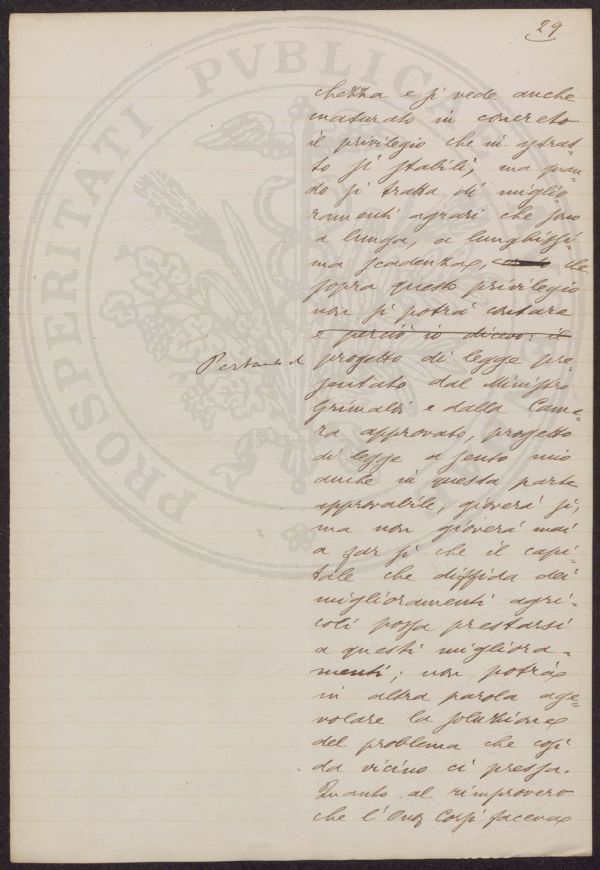 29
chezza e si vede anche
maturato in concreto
il privilegio che in astrat=
to si stabilì, ma quan=
do si tratta di miglio
ramenti agrari che sono
a lunga, a lunghissi=
ma scadenza, che
sopra questo privilegio
non si potrà contare
e perciò io dicevo: il
Pertanto il progetto di legge pre=
sentato dal Ministro
Grimaldi e dalla Came=
ra approvato, progetto
di legge a senso mio
anche in questa parte
approvabile, gioverà sì,
ma non gioverà mai
a far sì che il capi=
tale che diffida dei
miglioramenti agri=
coli possa prestarsi
a questi migliora=
menti; non potrà
in altra parola age=
volare la soluzione
del problema che così
da vicino ci pressa.
Quanto al rimprovero
che l'Onor Corsi faceva
PROSPERITATI PVBLICAE